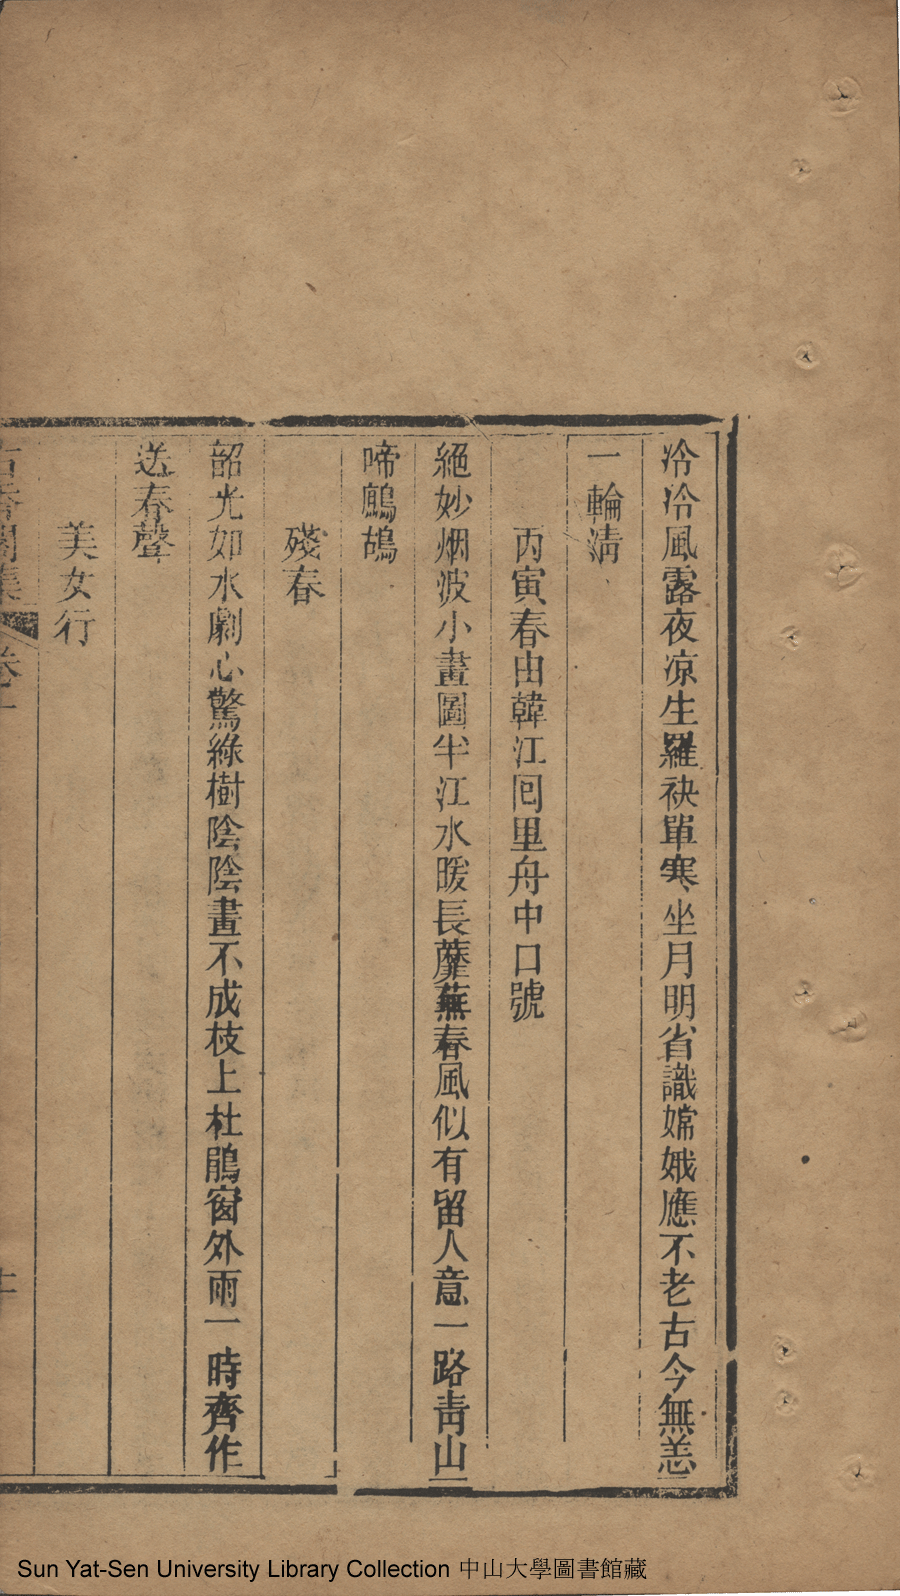 冷冷風露夜凉生羅袂單寒坐月明省識嫦娥應不老古今無恙
一輪淸
丙寅春由韓江囘里舟中口號
絕妙烟波小畫圖半江水暖長蘼蕪春風似有留人意一路靑山
啼鷓鴣
殘春
韶光如水劇心驚綠樹陰陰畫不成枝上杜鵑窗外雨一時齊作
送春聲
美女行
Sun Yat-Sen University Library Collection 中山大學圖書館藏